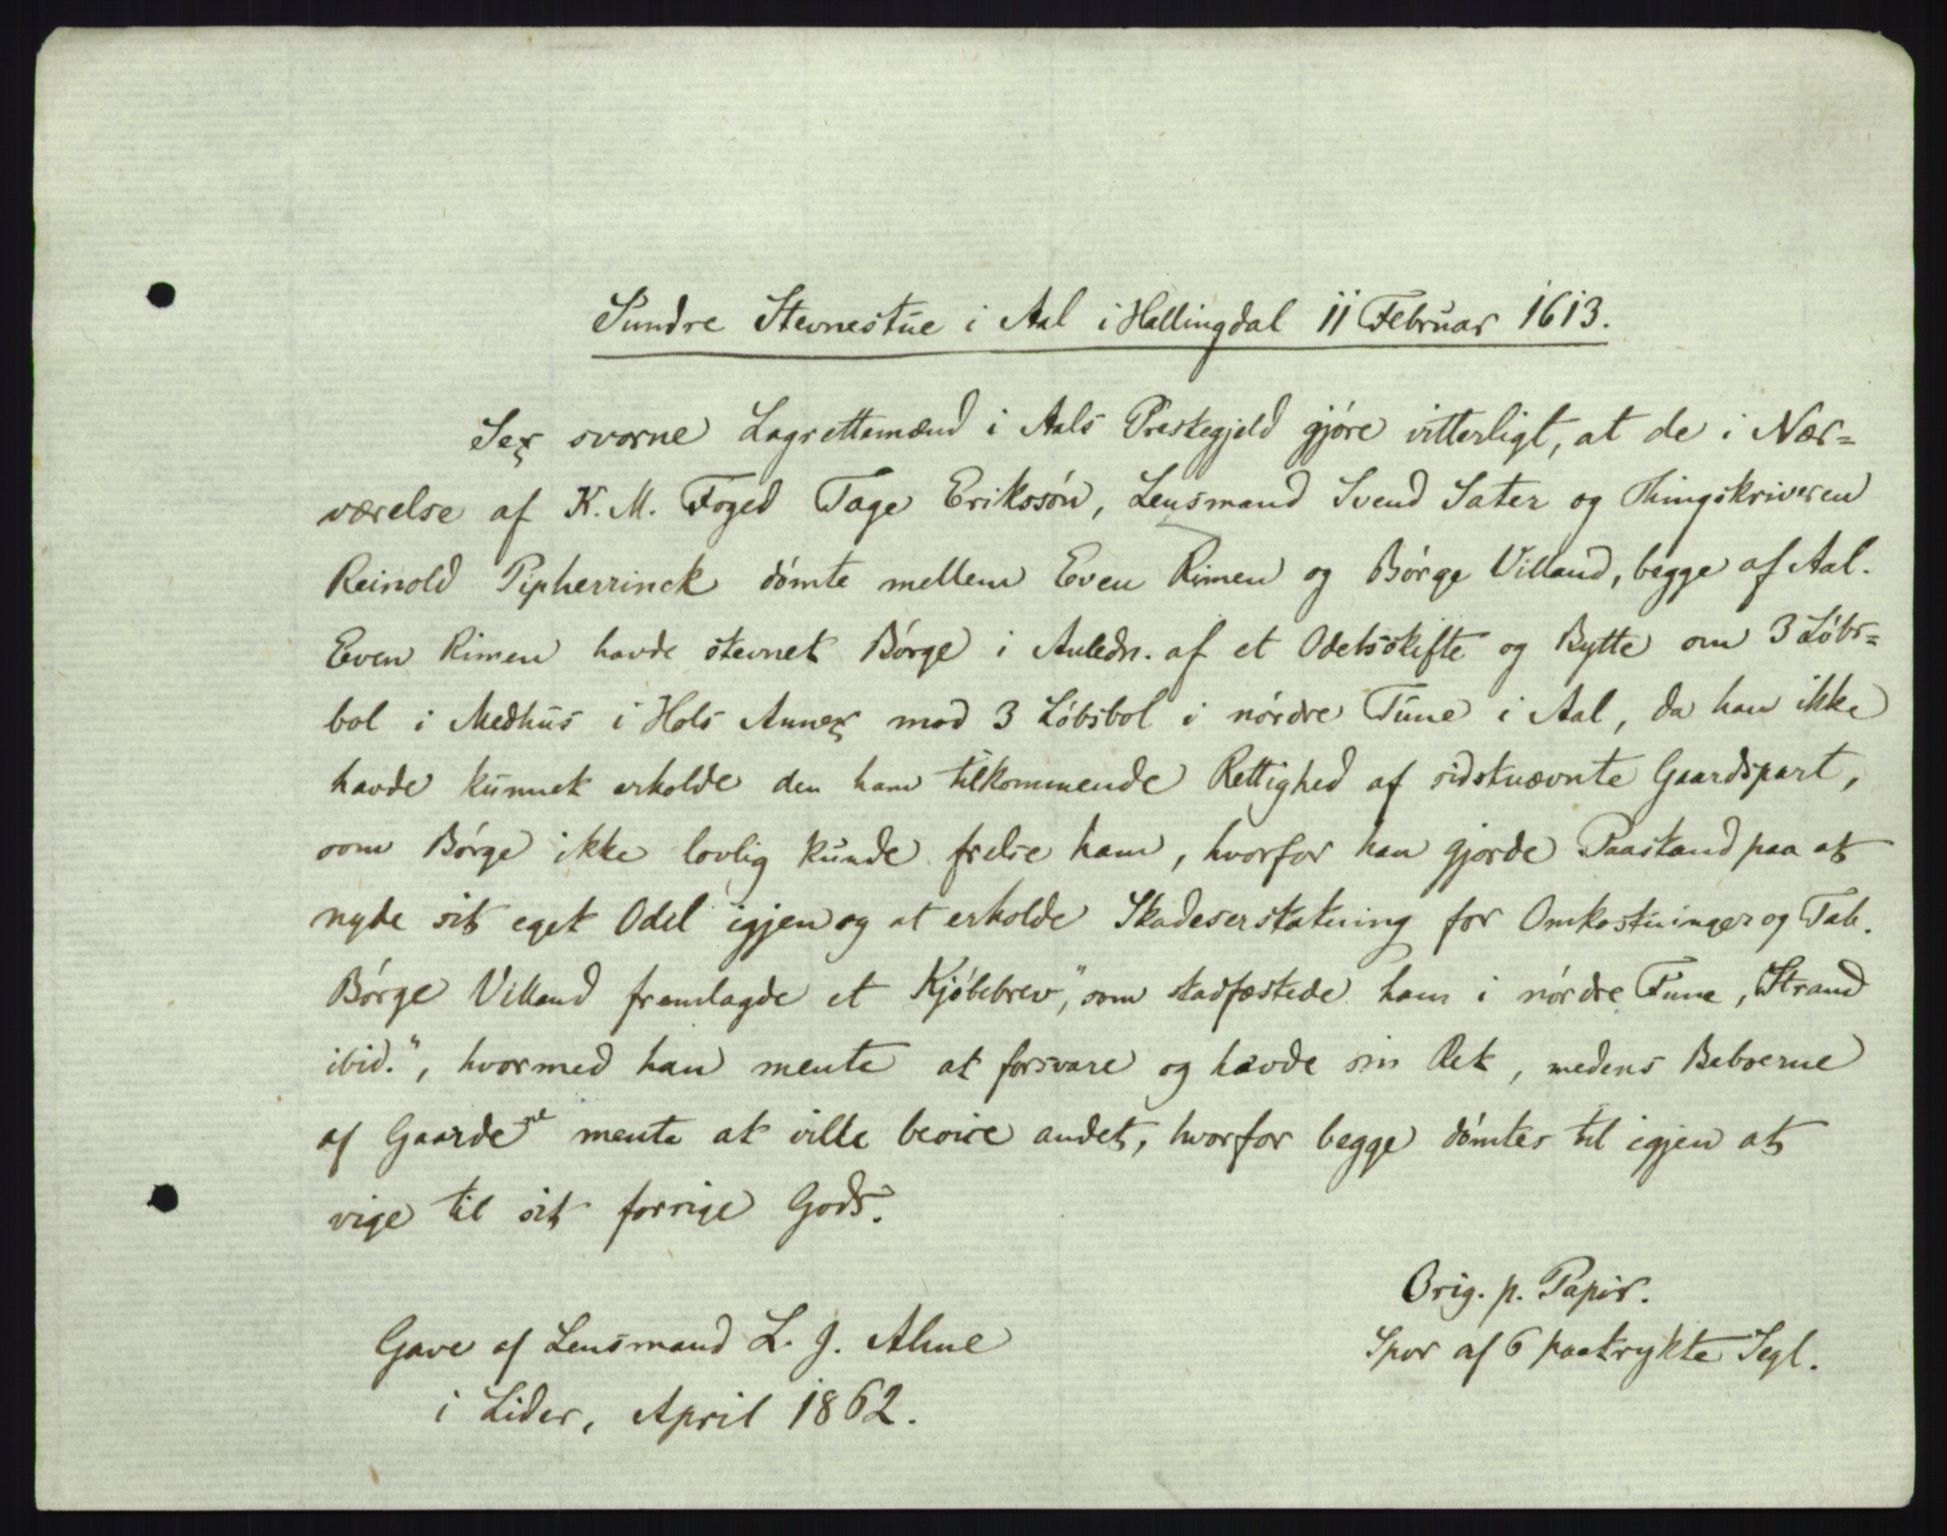 Sundre Stevnestue i Aal i Hallingdal 11 Februar 1613.
Sex svorne Lagrettemænd i Aals Præstegjeld gjóre vitterligt, at de i Nær=
værelse af K. M. Foged Tage Erikssón, Lensmand Svend Sater og Thingskriveren
Reinold Pipherrinck dómte mellem Even Rimen og Bórge Villand, begge af Aal.
Even Rimen havde stevnet Bórge i Anledn. af et Odelsskifte og Bytte om 3 Lóbs=
bol i Medhus i Hols Annex mod 3 Lóbsbol i nórdre Tune i Aal, da han ikke
havde kunnet erholde den ham tilkommende Rettighed af sidstnævnte Gaardspart,
som Bórge ikke lovlig kunde frelse ham, hvorfor han gjorde Paastand paa at
nyde sit eget Odel igjen og at erholde Skadeserstatning for Omkostninger og Tab.
Bórge Villand fremlagde et Kjóbebrev, "som stadfæstede ham i nórdre Tune, Strand
ibid.", hvormed han mente at forsvare og hævde sin Ret, medens Beboerne
af Gaardene mente at ville bevise andet, hvorfor begge dómtes til igjen at
vige til sit forrige Gods.
Orig. p. Papir.
Spor af 6 paatrykte Segl.
Gave af Lensmand L. J. Alme
i Lider, April 1862.